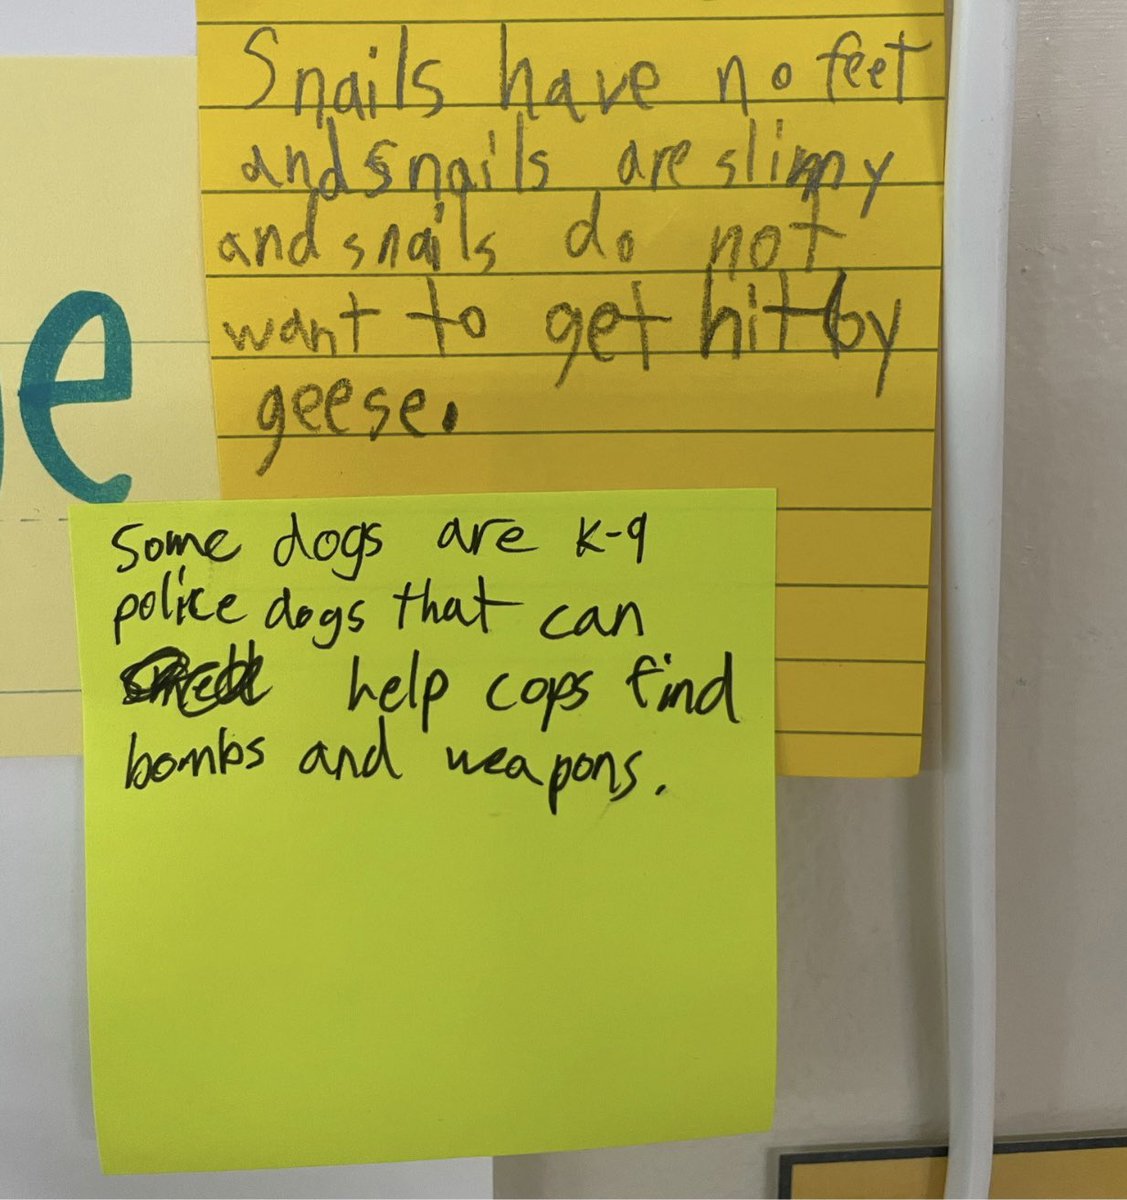 Snails have no feet
and snails are slimy
and snails do not
want to get hit by
geese.
e
Some dogs are K-9
police dogs that can
help cops find
bombs and weapons.